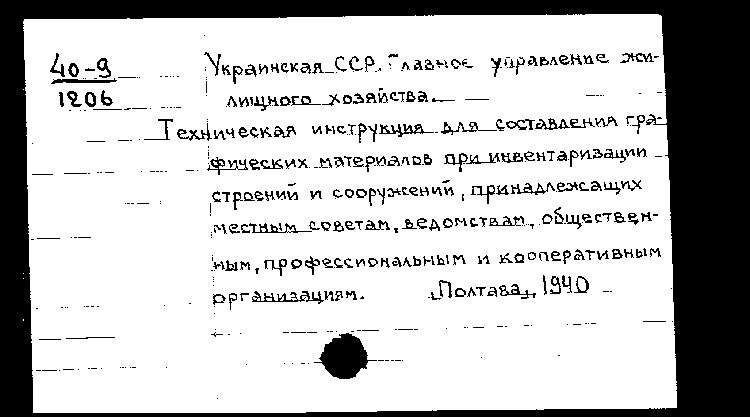 40-9
1206
Украинская ССР. Главное управление жи-
лищного хозяйства.
Техническая инструкция для составления гра-
фических материалов при инвентаризации
строений и сооружений, принадлежащих
местным советам, ведомствам, обществен-
ным, профессиональным и кооперативным
организациям. [Полтава], 1940